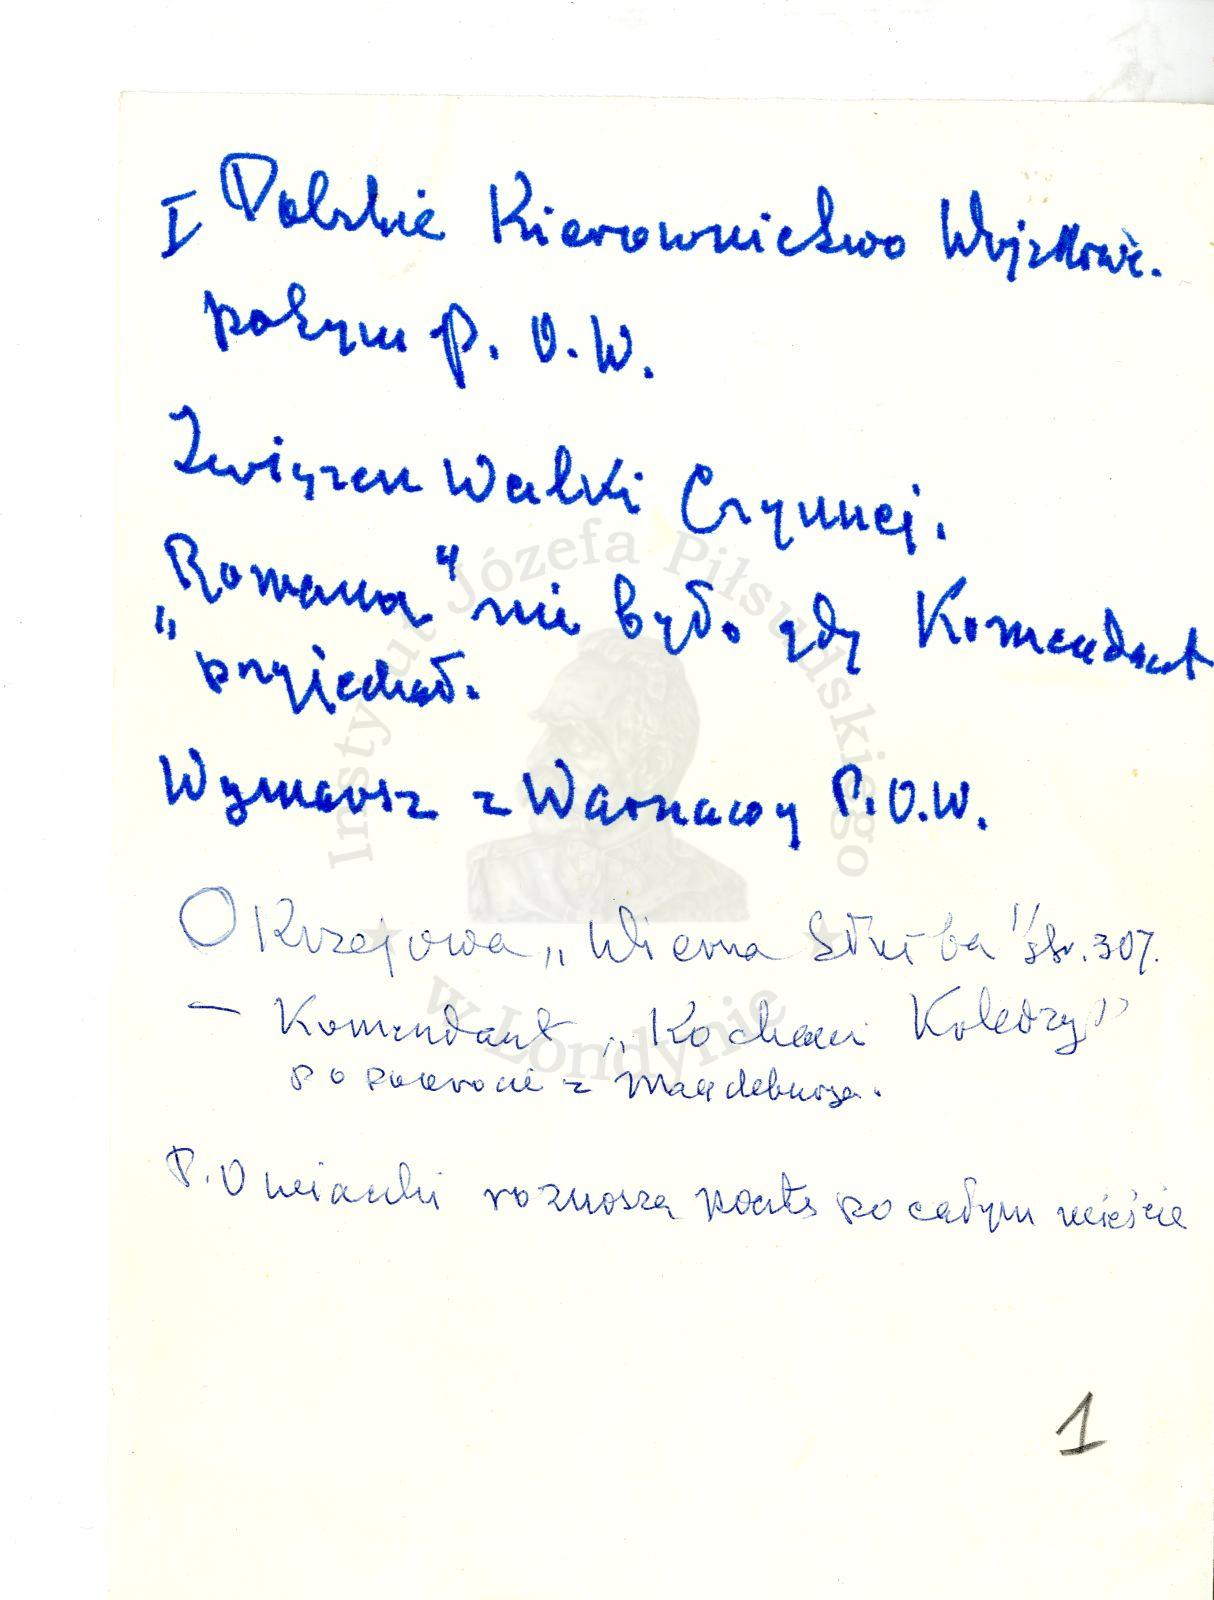 I Polskie Kierownictwo Wojskowe.
potym P.O.W.
Związek Walki Czynnej.
„Romana" nie było gdy Komendant
przyjechał.
Wymarsz z Warszawy P.O.W.
Okrzejowa „Wierna Służba" str. 307.
— Komendant „Kochani Koledzy"
po powrocie z Magdeburga.
P.Owiaczki roznoszą pocztę po całym mieście
1
Instytut Józefa Piłsudskiego
w Londynie